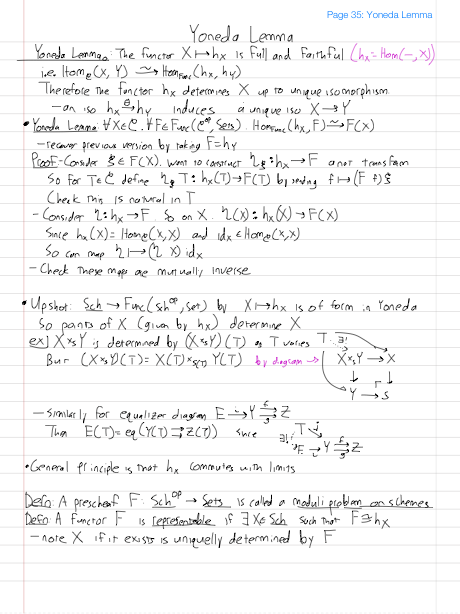 Page 35: Yoneda Lemma
Yoneda Lemma
Yoneda Lemma: The functor X ↦ h_X is full and faithful (h_X = Hom(-, X))
i.e. Hom_C(X, Y) ~→ Hom_Func(h_X, h_Y)
Therefore the functor h_X determines X up to unique isomorphism
- an iso h_X →^θ h_Y induces a unique iso X → Y
• Yoneda Lemma: ∀X∈C, ∀F∈Func(C^op, Sets). Hom_Func(h_X, F) ≅ F(X)
- recover previous version by taking F = h_Y
Proof - Consider ξ ∈ F(X). Want to construct η_ξ : h_X → F a nat transform
So for T∈C define η_ξ T : h_X(T) → F(T) by sending f ↦ (F f) ξ
Check this is natural in T
- Consider η : h_X → F. So on X. η(X) : h_X(X) → F(X)
Since h_X(X) = Hom_C(X,X) and id_X ∈ Hom_C(X,X)
So can map η ↦ (η X) id_X
- Check these maps are mutually inverse
• Upshot: Sch → Func(Sch^op, Set) by X ↦ h_X is of form in Yoneda
So points of X (given by h_X) determine X
ex] X ×_S Y is determined by (X ×_S Y)(T) as T varies
But (X ×_S Y)(T) = X(T) ×_S(T) Y(T) by diagram →
T ∃!
X ×_S Y → X
↓ ┌ ↓
Y → S
- Similarly for equalizer diagram E → Y ⇉^f_g Z
Then E(T) = eq(Y(T) ⇉ Z(T)) since
∃! T
E → Y ⇉^f_g Z
• General principle is that h_X commutes with limits
Defn: A presheaf F : Sch^op → Sets is called a moduli problem on schemes
Defn: A functor F is representable if ∃ X∈Sch such that F ≅ h_X
- note X if it exists is uniquelly determined by F